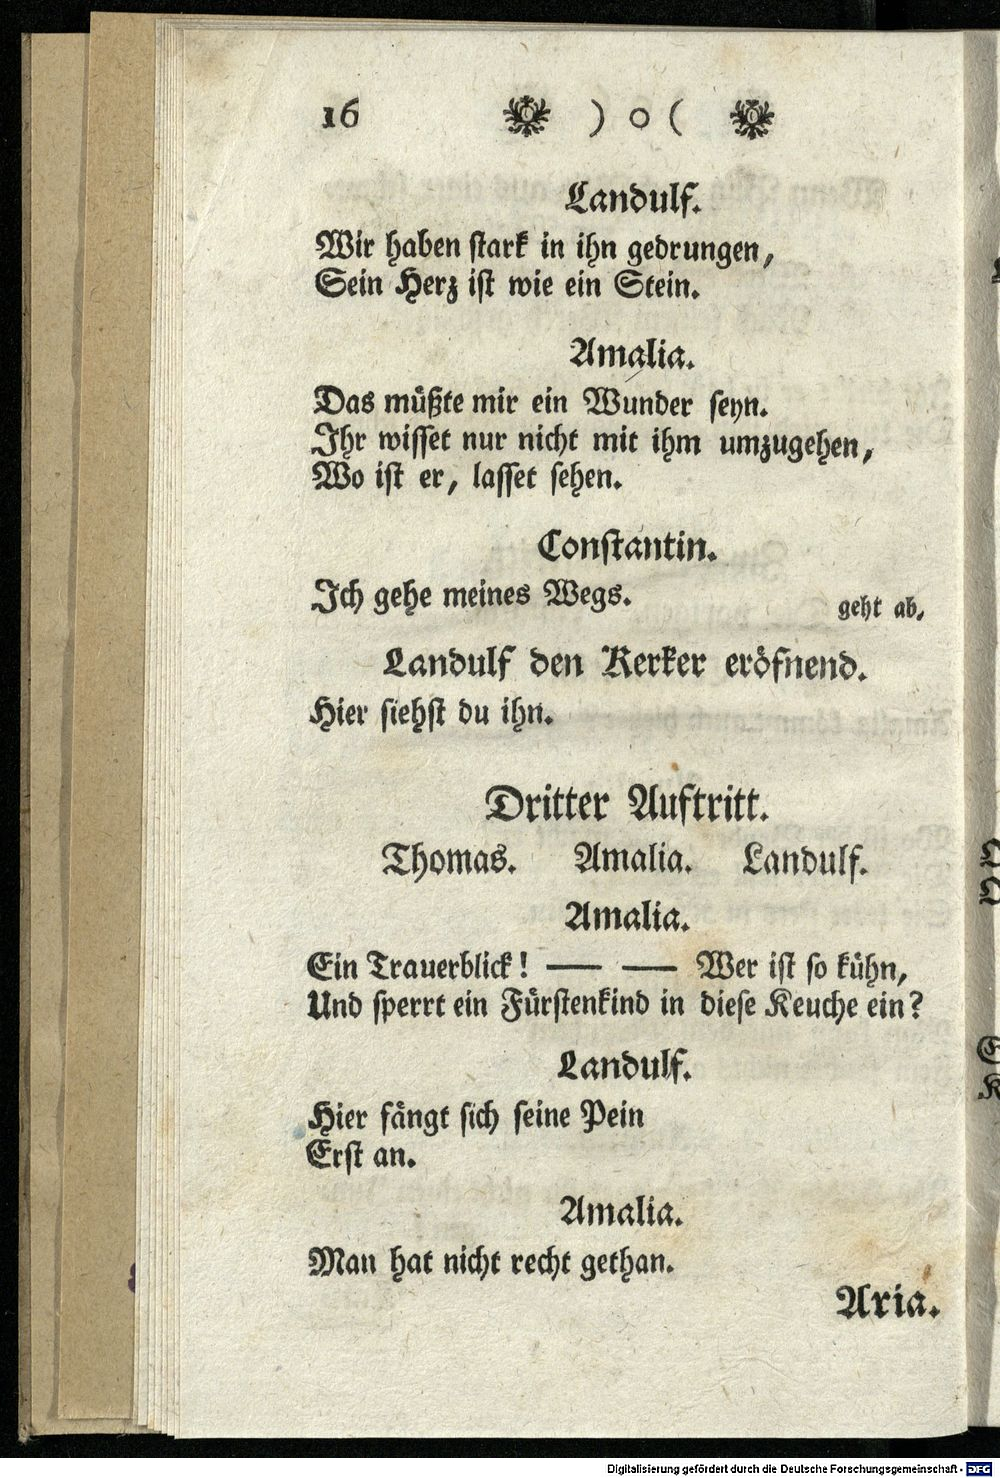 16 ) o (
Landulf.
Wir haben stark in ihn gedrungen,
Sein Herz ist wie ein Stein.
Amalia.
Das müßte mir ein Wunder seyn.
Ihr wisset nur nicht mit ihm umzugehen,
Wo ist er, lasset sehen.
Constantin.
Ich gehe meines Wegs. geht ab.
Landulf den Kerker eröfnend.
Hier siehst du ihn.
Dritter Auftritt.
Thomas. Amalia. Landulf.
Amalia.
Ein Trauerblick! — — Wer ist so kühn,
Und sperrt ein Fürstenkind in diese Keuche ein?
Landulf.
Hier fängt sich seine Pein
Erst an.
Amalia.
Man hat nicht recht gethan.
Aria.
Digitalisierung gefördert durch die Deutsche Forschungsgemeinschaft - DFG